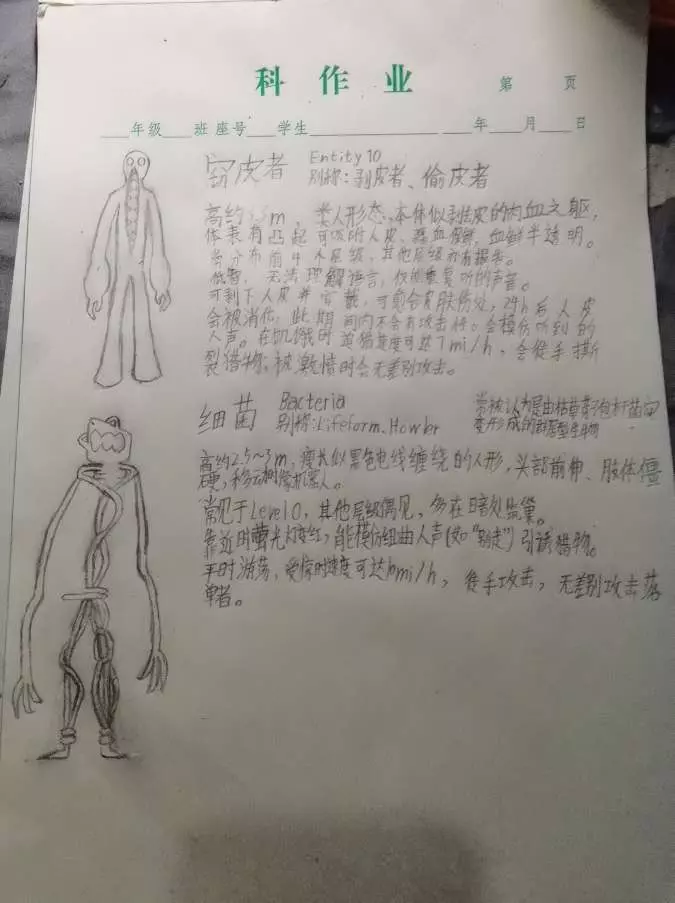 科 作 业
第 页
年级 班 座号 学生 年 月 日
窃皮者 Entity 10
别称:剥皮者、偷皮者
高约 m,类人形态、本体似剥去皮的肉血之躯,
体表有凸起可吸附人皮、 血 鲜,血鲜半透明。
常分布前 层级,其他层级亦有报告。
低智,无法理解语言,仅能重复听的声音。
可剥下人皮并穿戴,可愈合皮肤伤处,24h后人皮
会被消化,此期间内不会有攻击性。会模仿听到的
人声。在饥饿时追猎速度可达7mi/h,会徒手撕
裂猎物。被激愤时会无差别攻击。
细菌 Bacteria
别称:Lifeform.Howler
常被认为是由枯草芽孢杆菌
变形成的 型生物
高约2.5~3m,瘦长似黑色电线缠绕的人形,头部前伸、肢体僵
硬,移动 像机器人。
常见于Level 0,其他层级偶见,多在暗处监巢。
靠近时萤光灯变红,能模仿扭曲人声(如“别走”)引诱猎物。
平时游荡,受惊时速度可达 mi/h,徒手攻击,无差别攻击落
单者。